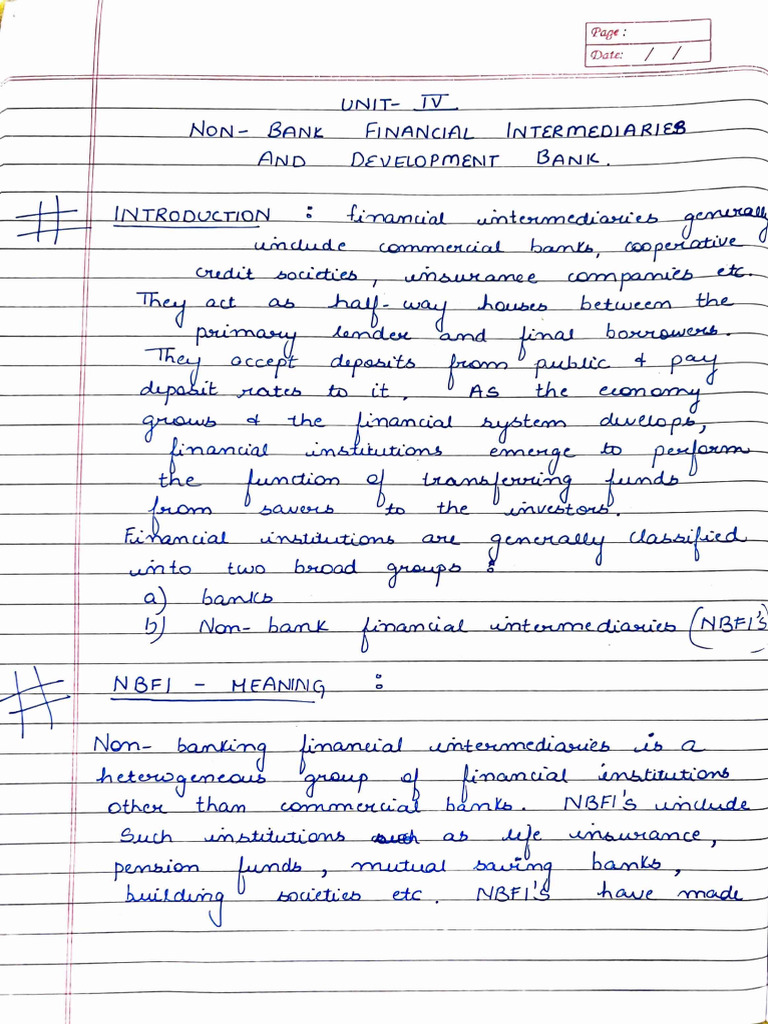 Page :
Date: / /
UNIT- IV
NON- BANK FINANCIAL INTERMEDIARIES
AND DEVELOPMENT BANK.
# INTRODUCTION : financial intermediaries generally
include commercial banks, cooperative
credit societies, insurance companies etc.
They act as half-way houses between the
primary lender and final borrowers.
They accept deposits from public & pay
deposit rates to it. As the economy
grows & the financial system develops,
financial institutions emerge to perform
the function of transferring funds
from savers to the investors.
Financial institutions are generally classified
into two broad groups :
a) banks
b) Non-bank financial intermediaries (NBFI's)
# NBFI - MEANING :
Non- banking financial intermediaries is a
heterogeneous group of financial institutions
other than commercial banks. NBFI's include
Such institutions as life insurance,
pension funds, mutual saving banks,
building societies etc. NBFI's have made